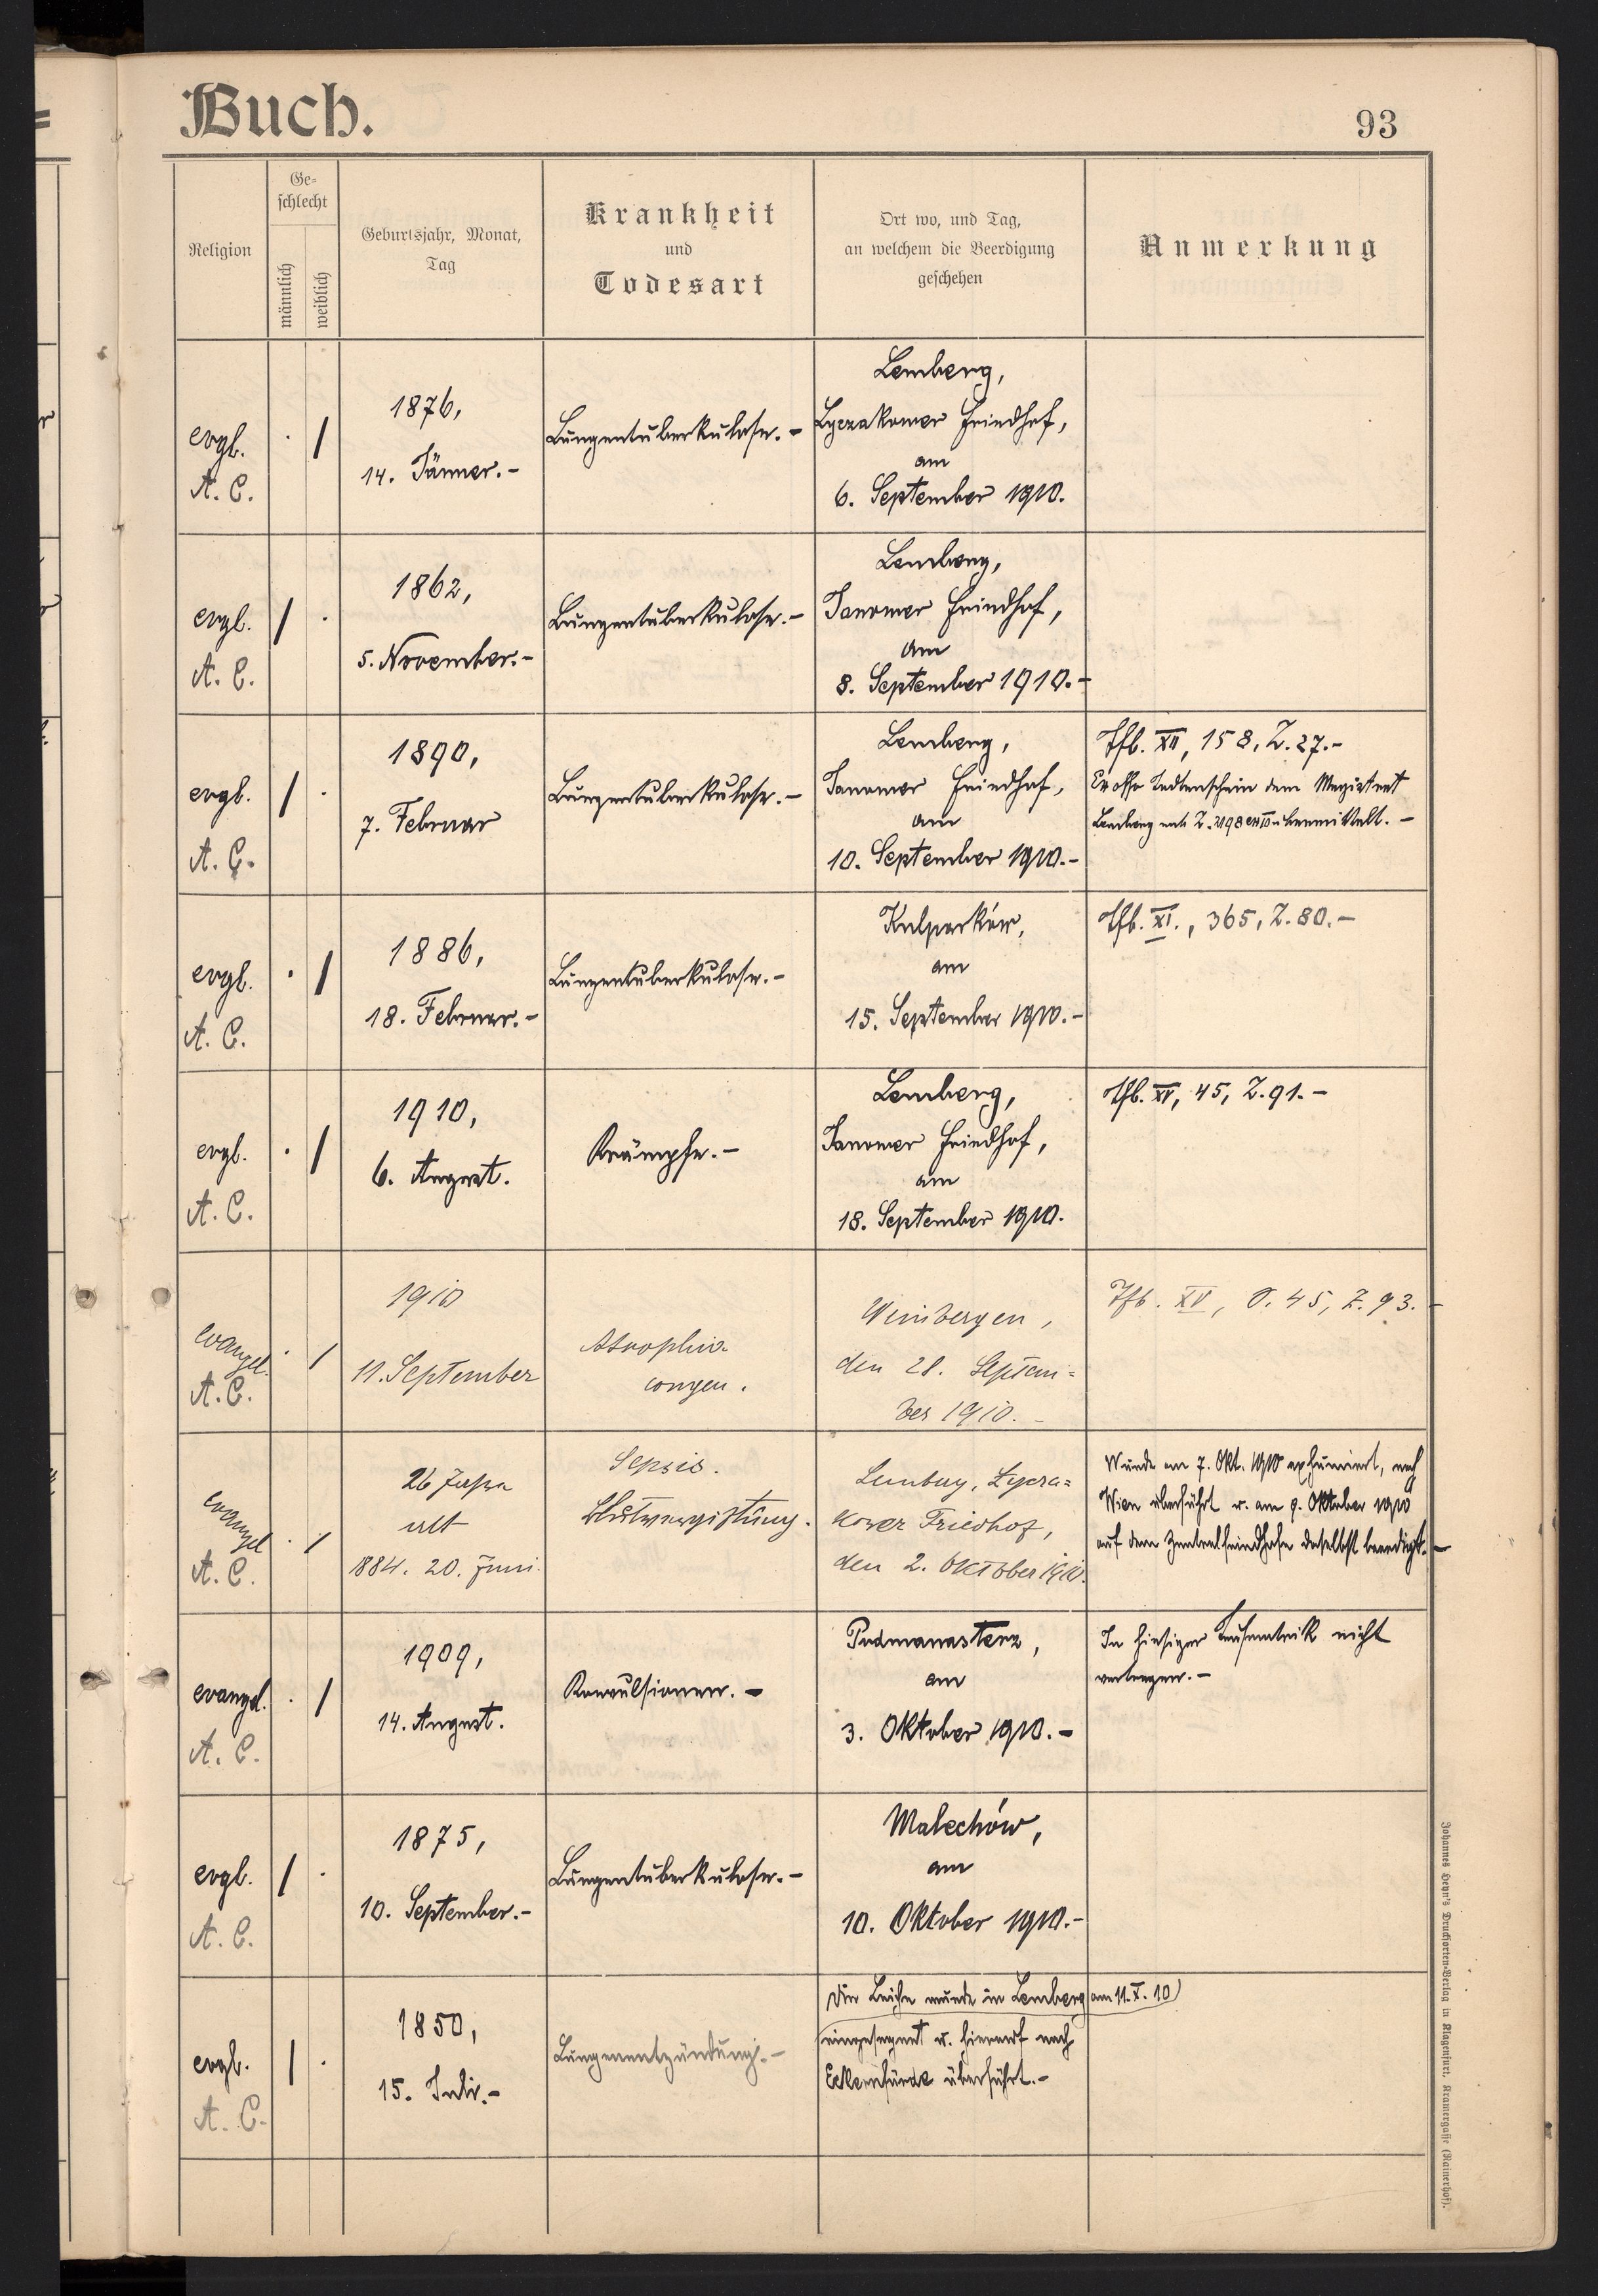 Buch.
93
Religion
Ge-
schlecht
männlich
weiblich
Geburtsjahr, Monat,
Tag
Krankheit
und
Todesart
Ort wo, und Tag,
an welchem die Beerdigung
geschehen
Anmerkung
evgl.
A. C.
1876,
14. Jänner.-
Lungentuberkulose.-
Lemberg,
Lyczakower Friedhof,
am
6. September 1910.
evgl.
A. C.
1862,
5. November.-
Lungentuberkulose.-
Lemberg,
Janower Friedhof,
am
8. September 1910.-
evgl.
A. C.
1890,
7. Februar
Lungentuberkulose.-
Lemberg,
Janower Friedhof,
am
10. September 1910.-
Tfb. XII, 158, Z. 27.-
Ex offo Todtenschein dem Magistrat
Lemberg übermittelt.-
evgl.
A. C.
1886,
18. Februar.-
Lungentuberkulose.-
Kulparków,
am
15. September 1910.-
Tfb. XI., 365, Z. 80.-
evgl.
A. C.
1910,
6. August.
Krämpfe.-
Lemberg,
Janower Friedhof,
am
18. September 1910.
Tfb. XV, 45, Z. 91.-
evangel.
A. C.
1910
11. September
Atrophia
congen.
Weinbergen,
den 28. Septem-
ber 1910.-
Tfb. XV, S. 45, Z. 93.-
evangel
A. C.
26 Jahre
alt
1884. 20. Juni
Sepsis.
Blutvergiftung.
Lemberg, Lycza-
kower Friedhof,
den 2. Oktober 1910.
Wurde am 7. Okt. 1910 exhumiert, nach
Wien überführt u. am 9. Oktober 1910
auf dem Zentralfriedhofe daselbst beerdigt.-
evangel.
A. C.
1909,
14. August.
Konvulsionen.-
Podmanasterz,
am
3. Oktober 1910.-
In hiesiger Taufmatrik nicht
evgl.
A. C.
1875,
10. September.-
Lungentuberkulose.-
Malechów,
am
10. Oktober 1910.-
evgl.
A. C.
1850,
15. Juli.-
Lungenentzündung.-
Die Leiche wurde in Lemberg am 11. X. 10
eingesegnet u. hierauf nach
Eckernförde überführt.-
Johannes Heyn's Drucksorten-Verlag in Klagenfurt, Kramergasse (Rainerhof).